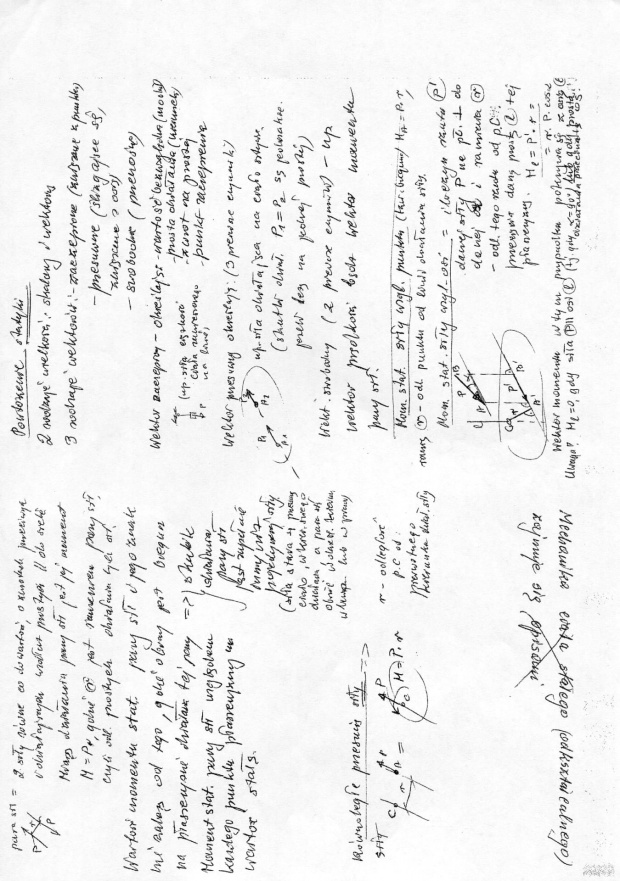 Powtórzenie statyki
2 rodzaje wielkości: skalary i wektory
3 rodzaje wektorów: - zaczepione (związane z punktem)
- przesuwne (ślizgające się,
związane z osią)
- swobodne (przenośne)
Wektor zaczepiony - określają: - wartość bezwzględna (moduł)
- prosta działania (kierunek)
- zwrot na prostej
- punkt zaczepienia
(np. siła ciężkości
ciała zawieszonego
na linie)
Wektor przesuwny określają: (3 pierwsze czynniki)
np. siła działająca na ciało sztywne
(skutki działań P₁ = P₂ są jednakowe
jeżeli leżą na jednej prostej)
Wekt. swobodny (2 pierwsze czynniki) - np.
wektor prędkości kąta wektor momentu
pary sił.
Mom. stat. siły wzgl. punktu (tzw. bieguna) M = P·r,
ramię (r) - odl. punktu od linii działania siły.
Mom. stat. siły wzgl. osi = iloczyn rzutu (P')
danej siły P na pł. ⊥ do
danej osi i ramienia (r)
- odl. tego rzutu od p.C
przebicia daną prostą (l) tej
płaszczyzny. Ml = P'·r =
= r·P·cosα
Wektor momentu w tym przypadku pokrywa się z osią (l)
Uwaga! Ml = 0, gdy siła (P) || osi (l) (tj. gdy α = 90°) lub gdy prosta
działania przecina tę oś.
para sił = 2 siły równe co do wartości, o zwrotach przeciwnych
i działające wzdłuż prostych || do siebie
Miarą działania pary sił jest jej moment
M = Pr, gdzie (r) jest ramieniem pary sił,
czyli odl. prostych działania tych sił.
Wartość momentu stat. pary sił i jego znak
nie zależą od tego, gdzie obrany jest biegun
na płaszczyźnie działania tej pary =>
Moment stat. pary sił względem
każdego punktu płaszczyzny ma
wartość stałą.
skutek
działania
pary sił
jest zupełnie
inny niż
pojedynczej siły
(siła stara się przesunąć
ciało, w kier. swego
działania, a para sił
obrócić w danym kierunku
w lewo lub w prawo)
Równoległe przesun. siły =>
siły
M = P·r
r - odległość
p.C od
pierwotnego
kierunku dział. siły
Mechanika ciała stałego (odkształcalnego)
zajmuje się opisami